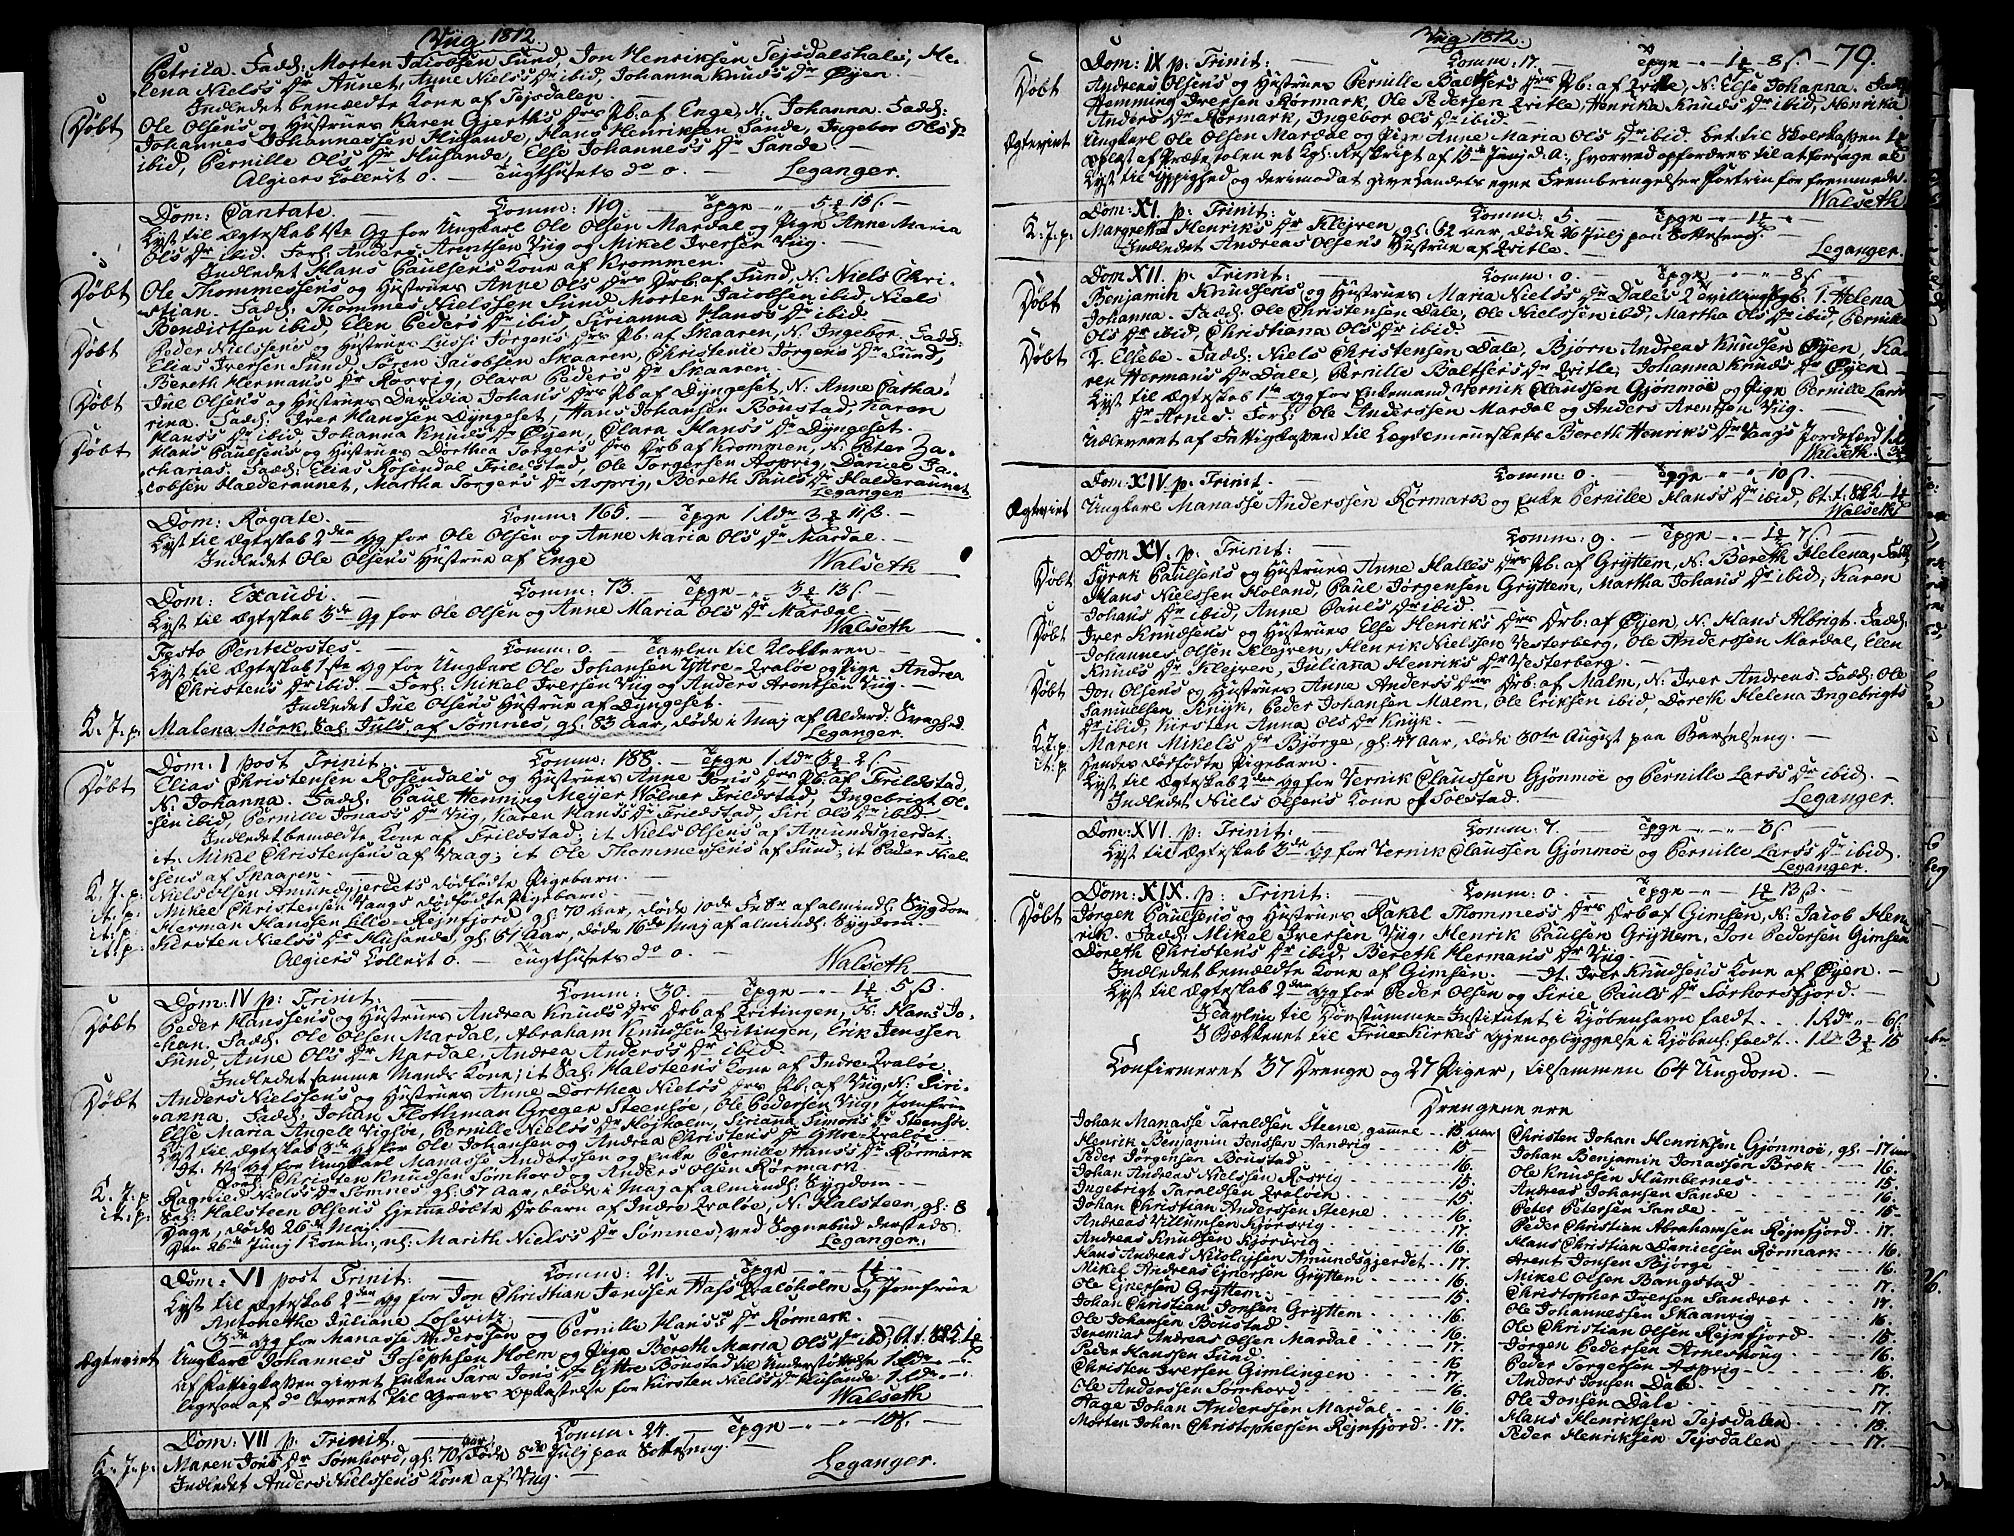 Viig 1812.
Petrica. Fadd: Morten Jacobsen Sund, Jon Henriksen Tejsdalshals, He-
lena Niels's Dr Aunet, Anne Niels's Dr ibid, Johanna Knuds Dr Øyen.
Indledet bemældte Kone af Tejsdalen.
Døbt
Ole Olsen's og Hustrues Karen Gjerths Drs Pb. af Enge, N. Johanna. Fadd:
Johannes Johannessen Husande, Hans Henriksen Sande, Ingebor Ols Dr
ibid, Pernille Ols Dr Husande, Else Johannes's Dr Sande.
Algiers Collect 0. — Tugthusets do 0. — Leganger.
Dom: Cantate. — Comm: 119. — Tpge " 5 15 ß.
Lyst til Ægteskab 1ste Gg for Ungkarl Ole Olsen Mardal og Pige Anne Maria
Ols Dr ibid. Forl: Anders Arentsen Viig og Mikel Iversen Viig.
Indledet Hans Paulsen's Kone af Krommen.
Døbt
Ole Thommessen's og Hustrues Anne Ols Drs Drb: af Sund, N: Niels Chri-
stian. Fadd: Thommes Nielssen Sund, Morten Jacobsen ibid, Niels
Bendictsen ibid, Elen Peders Dr ibid, Sirianna Hans's Dr ibid.
Døbt
Peder Nielssen's og Hustrues Lussi Jørgens Drs Pb. af Skaaren, N. Ingebor. Fadd:
Elias Iversen Sund, Søren Jacobsen Skaaren, Christense Jørgens Dr Sund,
Bereth Hermans Dr Roosvig, Olara Peders Dr Skaaren.
Døbt
Jul Olsen's og Hustrues Davidia Johans Drs Pb af Dyngeset, N: Anne Catha-
rina. Fadd: Iver Hanssen Dyngeset, Hans Johansen Boustad, Karen
Hans's Dr ibid, Johanna Knuds Dr Øyen, Clara Hans's Dr Dyngeset.
Døbt
Hans Paulsen's og Hustrues Dorthea Torgers Drs Drb af Krommen, N: Peter Za-
charias. Fadd: Elias Rosendal Frildstad, Ole Torgersen Asprig, Daniel Ja-
cobsen Halderaunet, Martha Torgers Dr Asprig, Bereth Pauls Dr Halderaunet
Leganger
Dom: Rogate. — Comm: 165. — Tpge 1 Rdr 3 11 ß.
Lyst til Ægteskab 2den Gg for Ole Olsen og Anne Maria Ols Dr Mardal.
Indledet Ole Olsen's Hustrue af Enge
Walseth
Dom: Exaudi. — Comm: 73. — Tpge " 3 13 ß
Lyst til Ægteskab 3de Gg for Ole Olsen og Anne Maria Ols Dr Mardal.
Walseth
Festo Pentecostes. — Comm: 0. — Tavlen til Klokkeren
Lyst til Ægteskab 1ste Gg for Ungkarl Ole Johansen Yttre-Qvaløe og Pige Andrea
Christens Dr ibid. — Forl: Mikel Iversen Viig og Anders Arentsen Viig.
Indledet Jul Olsen's Hustrue af Dyngeset.
K. J. p: Malena Mørk, Sal: Juls, af Sømnes, gl: 83 Aar, døde i Maj af Alderd: Svaghed.
Leganger.
Dom: I post Trinit: — Comm: 188. — Tpge 1 Rdr 3 2 ß
Døbt
Elias Christensen Rosendals og Hustrues Anne Jons Drs Pb. af Frildstad,
N. Johanna. Fadd: Paul Henning Meyer Wølner Frildstad, Ingebrigt Ol-
sen ibid, Pernille Jonas's Dr Viig, Karen Hans's Dr Frildstad, Siri Ols Dr ibid.
Indledet bemældte Kone af Frildstad; it Niels Olsen's af Amundsgjerdet;
it. Mikel Christensen's af Vaag; it Ole Thommessen's af Sund; it Peder Niel-
sens af Skaaren.
K. J. p: Niels Olsen Amundsgjerdets dødfødte Pigebarn.
it. p: Mikel Christensen Vaags dødfødte Pigebarn.
it. p: Herman Hanssen Lille-Rejnfjord, gl: 70 Aar, døde 10de af almindl: Sygdom
it. p: Kirsten Niels's Dr Husande, gl: 61 Aar, døde 16de Maj af almindl: Sygdom.
Algiers Collect 0. — Tugthusets do 0. —
Walseth
Dom: IV p: Trinit: — Comm: 30. — Tpge " 1 5 ß.
Døbt
Peder Hanssen's og Hustrues Andrea Knuds Drs Drb af Qvitingen, N: Hans Jo-
han. Fadd: Ole Olsen Mardal, Abraham Knudsen Qvitingen, Erik Jenssen
Sund, Anne Ols Dr Mardal, Andrea Anders's Dr ibid.
Indledet samme Mands Kone; it Sal: Halsteens Kone af Indre-Qvaløe.
Døbt
Anders Nielssen's og Hustrues Anne Dorthea Niels's Drs Pb: af Viig, N: Siri-
anna. Fadd: Johan Flothman Greger Steensøe, Ole Pedersen Viig, Jomfrue
Else Maria Angell Vigsøe, Pernille Niels's Dr Højholm, Siriana Simons Dr Steensøe.
Lyst til Ægteskab 3de Gg for Ole Johansen og Andrea Christens Dr Yttre-Qvaløe.
It. 1ste Gg for Ungkarl Manasse Anderssen og Enke Pernille Hans's Dr Rørmark
Forl: Christen Knudsen Sømhovd og Anders Olsen Rørmark.
K. J. p: Ragnild Niels's Dr Sømnes, gl: 57 Aar, døde i Maj af almindl: Sygdom.
it. p: Sal: Halsteen Olsen's hjemmedøbte Drbarn af Indre Qvaløe, N. Halsteen, gl: 8
Dage, døde 26de Maj.
Den 26de Junij 1 Comm:, nl: Marith Niels's Dr Sømnes, ved Sognebud dersteds.
Leganger.
Dom: VI post Trinit: — Comm: 21. — Tpge " 1
Lyst til Ægteskab 2den Gg for Jon Christian Jenssen Hass Qvaløholm og Jomfrue
Antonethe Juliane Losevitz.
3de Gg for Manasse Anderssen og Pernille Hans's Dr Rørmark.
Ægteviet
Ungkarl Johannes Josephsen Holm og Pige Bereth Maria Ols Dr ibid,
Af Fattigkassen givet Enken Sara Jons Dr Yttre Boustad til Understøttelse 1 Rdr.
ligesaa af do leveret til Gravs Opkastelse for Kirsten Niels's Dr Husande 1 Rdr.
Walseth
Dom: VII p: Trinit: — Comm: 24. — Tpge " " 10 ß.
K. J. p: Maren Jons Dr Sømhovd, gl: 70 Aar, døde 8de Julij paa Sotteseng.
Indledet Anders Nielssen's Kone af Viig.
Leganger.
Viig 1812.
79.
Dom: IX p: Trinit: — Comm: 17. — Tpge " 1 8 ß.
Døbt
Andreas Olsen's og Hustrues Pernille Baltsers Drs Pb: af Qvitle, N: Else Johanna. Fadd:
Hemming Iversen Rørmark, Ole Pedersen Qvitle, Henrika Knuds Dr ibid, Henrika
Anders's Dr Rørmark, Ingebor Ols Dr ibid.
Ægteviet
Ungkarl Ole Olsen Mardal og Pige Anne Maria Ols Dr ibid bet: til Skolekassen
Oplæst af Prædikestolen et Kgl: Reskript af 15de Junj d: A:, hvorved opfordres til at forsage al
Lyst til Yppighed og derimod at give Landets egne Frembringelser Fortrin for fremmede.
Walseth
Dom: XI. p: Trinit: — Comm: 5. — Tpge " 1
K. J. p. Margretha Henriks Dr Klejven, gl: 62 Aar, døde 26 Julj paa Sotteseng.
Indledet Andreas Olsen's Hustrue af Qvitle.
Leganger.
Dom XII. p: Trinit: — Comm: 0. — Tpge " " 8 ß.
Døbt
Benjamin Knudsen's og Hustrues Maria Niels's Dr Dales 2 Tvillinge Pgb: 1. Helena
Johanna. Fadd: Ole Christensen Dale, Ole Nielssen ibid, Martha Ols Dr ibid, Pernille
Ols Dr ibid, Christiana Ols Dr ibid.
Døbt
2. Ellebe. Fadd: Niels Christensen Dale, Bjørn Andreas Knudsen Øyen, Ka-
ren Hermans Dr Dale, Pernille Baltsers Dr Qvitle, Johanna Knuds Dr Øyen.
Lyst til Ægteskab 1ste Gg for Enkemand Vernik Claussen Gjønmoe og Pige Pernille Lars's
Dr Arnes. Forl: Ole Anderssen Mardal og Anders Arentsen Viig.
Udleveret af Fattigkassen til Lægdemenneskets Bereth Henrik's Dr Vaags Jordefærd
Walseth.
Dom: XIV p: Trinit. — Comm 0. — Tpge " " 10 ß.
Ægteviet Ungkarl Manasse Anderssen Rørmark og Enke Pernille Hans's Dr ibid,
Walseth
Dom: XV. p: Trinit: — Comm: 9. — Tpge " 1 7 ß.
Døbt
Syrak Paulsen's og Hustrues Anne Halles Drs Pb: af Gryttem, N: Bereth Helena, Fadd:
Hans Nielssen Holand, Paul Jørgensen Gryttem, Martha Johans Dr ibid, Karen
Johans Dr ibid, Anne Pauls Dr ibid.
Døbt
Iver Knudsen's og Hustrues Else Henriks Drs Drb: af Øyen, N: Hans Albrigt. Fadd:
Johannes Olsen Klejven, Henrik Nielssen Vesterberg, Ole Anderssen Mardal, Elen
Knuds Dr Klejven, Juliana Henriks Dr Vesterberg.
Døbt
Jon Olsen's og Hustrues Anne Anders's Drs Drb: af Malm, N: Iver Andreas. Fadd: Ole
Samuelsen Knyk, Peder Johansen Malm, Ole Eriksen ibid, Doreth Helena Ingebrigts
Dr ibid, Kirsten Anna Ols Dr Knyk.
K. J. p: Maren Mikels Dr Bjørge, gl: 47 Aar, døde 30te August paa Barselseng.
it. p: Hendes dødfødte Pigebarn.
Lyst til Ægteskab 2den Gg for Vernik Claussen Gjønmoe og Pernille Lars's Dr ibid.
Indledet Niels Olsen's Kone af Solstad.
Leganger.
Dom: XVI. p: Trinit: — Comm: 7. — Tpge " " 8 ß.
Lyst til Ægteskab 3de Gg for Vernik Claussen Gjønmoe og Pernille Lars's Dr ibid.
Leganger.
Dom: XIX. p: Trinit: — Comm: 0. — Tpge " 1 13 ß.
Døbt
Jørgen Paulsen's og Hustrues Rakel Thommes's Drs Drb af Gimsen, N: Jacob Hen-
rik. Fadd: Mikel Iversen Viig, Henrik Paulsen Gryttem, Jon Pedersen Gimsen
Doreth Christens Dr ibid, Bereth Hermans Dr Viig.
Indledet bemældte Kone af Gimsen. — It. Iver Knudsen's Kone af Øyen.
Lyst til Ægteskab 2den Gg for Peder Olsen og Sirie Pauls Dr Sørhorsfjord.
I Tavlen til Døvstumme-Institutet i Kjøbenhavn faldt . . . 1 Rdr " 6 ß
I Bækkenet til Frue-Kirkes Gjenopbyggelse i Kjøbenh: faldt . . 1 Rdr 3 15
Confirmeret 37 Drenge og 27 Piger, tilsammen 64 Ungdom.
Drengene ere
Johan Manasse Taraldsen Steene gamel 15 Aar
Henrik Benjamin Jenssen Aandvig 15
Peder Jørgensen Boustad 16.
Johan Andreas Nielssen Rosvig 15.
Ingebrigt Taraldsen Qvaløen 15
Johan Christian Anderssen Steene 16.
Andreas Villumsen Kjørsvig 17.
Andreas Knudsen Kjørsvig 16.
Hans Andreas Nicolajsen Amundsgjerdet 17.
Mikel Andreas Ejnersen Gryttem 16.
Ole Ejnersen Gryttem 15.
Johan Christian Jonsen Gryttem 16.
Ole Johansen Boustad 16.
Jeremias Andreas Olsen Mardal 17.
Peder Hanssen Sund 16
Christen Iversen Gimlingen 17.
Ole Anderssen Sømhovd 16.
Hage Johan Anderssen Mardal 16.
Morten Johan Christophersen Rejnfjord 17.
Christen Johan Henriksen Gjønmoe, gl: 17 aar
Johan Benjamin Jonassen Bræk 16.
Ole Knudsen Humbernes 15.
Andreas Johansen Sande 16.
Peter Petersen Sande 15
Peder Christian Abrahamsen Rejnfjord 17.
Hans Christian Danielsen Rørmark 16.
Arent Jonsen Bjørge 16
Mikel Olsen Bangstad 17.
Christopher Iversen Sandvær 17.
Ole Johannessen Skaanvig 16
Ole Christian Olsen Rejnfjord 15
Jørgen Pedersen Arneshoug 16.
Peder Torgersen Asprig 16.
Anders Jonsen Dale 17.
Ole Jonsen Dale 17
Hans Henriksen Tejsdalen 18.
Peder Henriksen Tejsdalen 17.